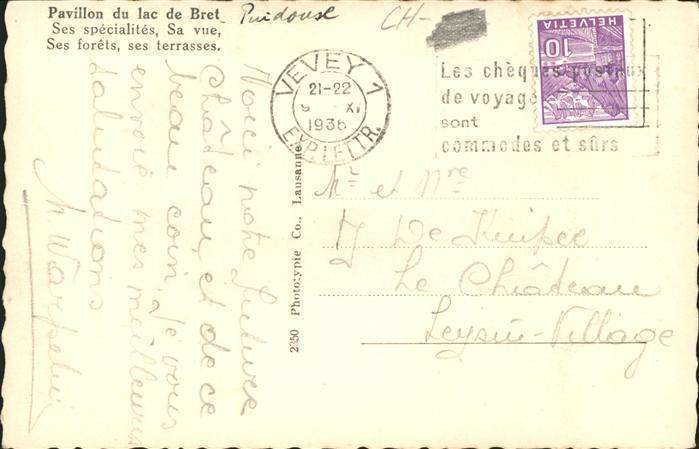 Pavillon du lac de Bret
Ses spécialités, Sa vue,
Ses forêts, ses terrasses.
Puidouse
CH-
VEVEY 1
21-22
XI
1936
EXP. LETTR.
HELVETIA
10
Les chèques postaux
de voyage
sont
commodes et sûrs
2250 Phototypie Co., Lausanne
Voici notre future
Château, et de ce
beau coin, je vous
envoie mes meilleures
salutations
Mr et Mre
J De Kuiper
Le Château
Leysin-Village